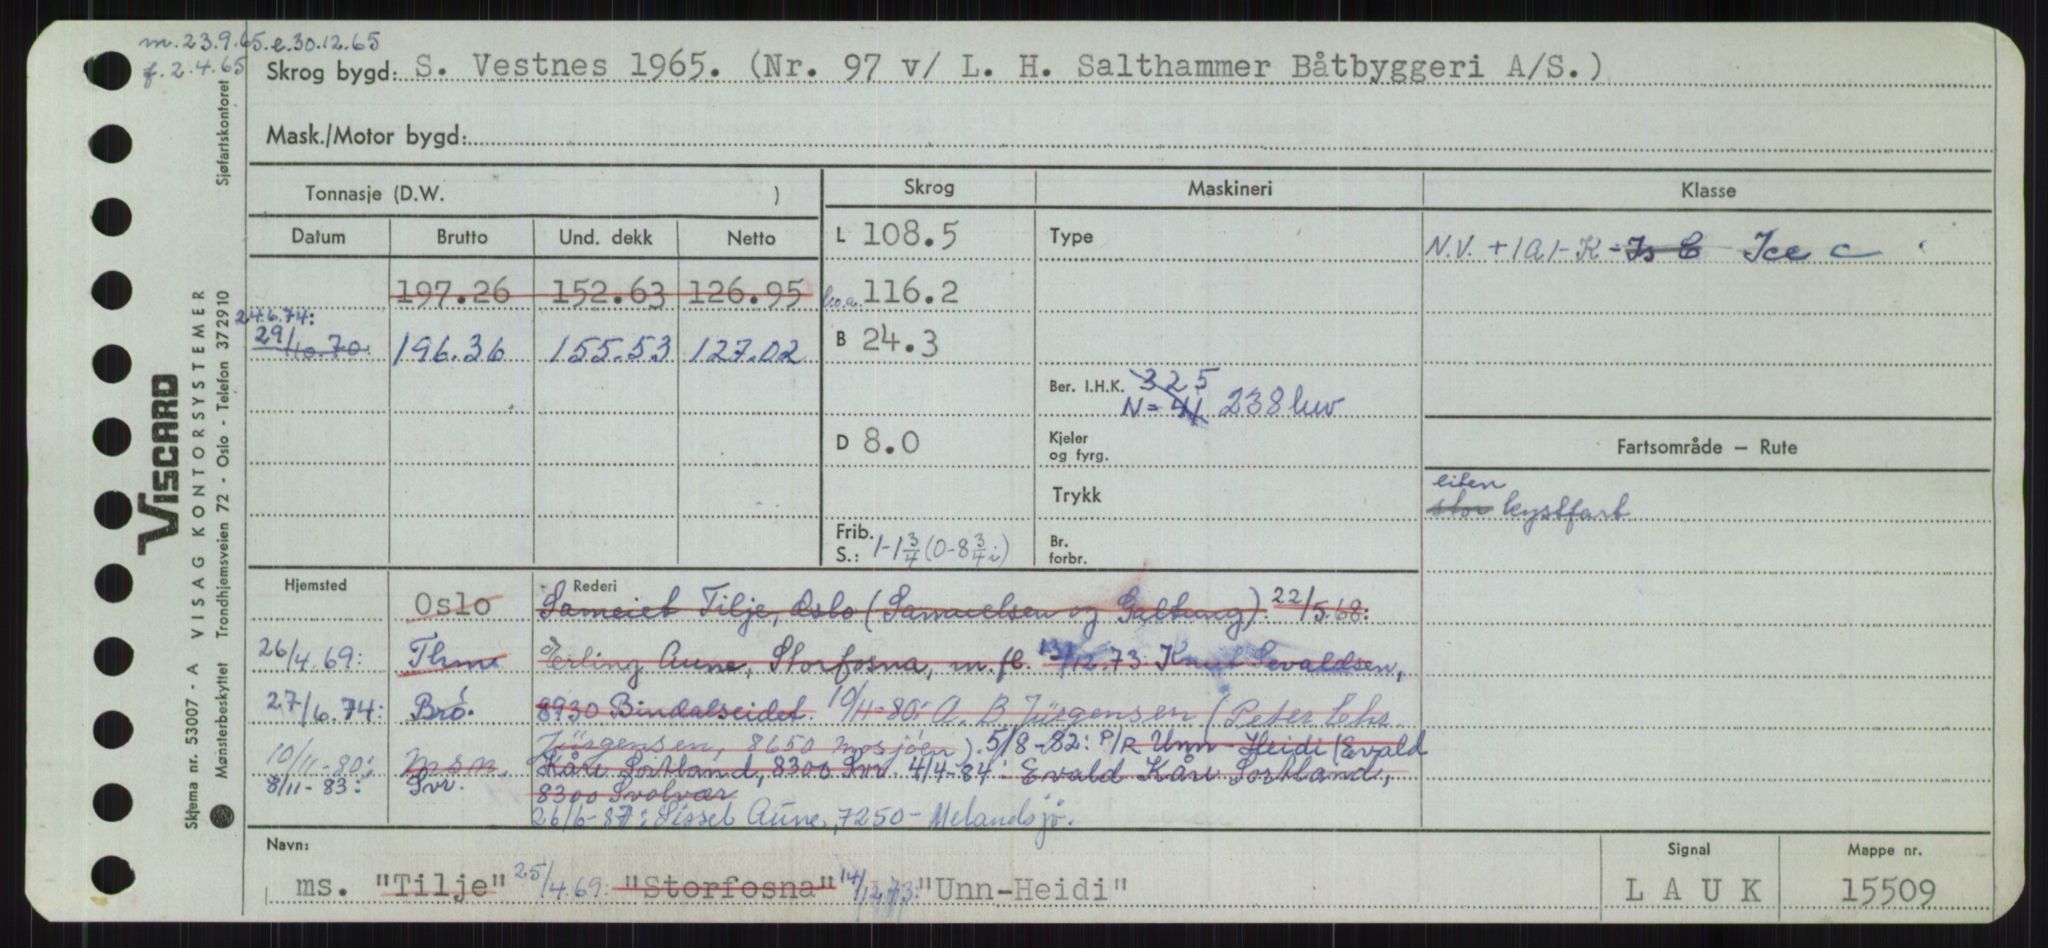 m. 23.9.65. e. 30.12.65
f. 2.4.65
Skrog bygd: S. Vestnes 1965. (Nr. 97 v/ L. H. Salthammer Båtbyggeri A/S.)
Mask./Motor bygd:
Tonnasje (D.W. )
Skrog Maskineri Klasse
Datum Brutto Und. dekk Netto
L 108.5 Type N.V. +1A1-K-Is C Ice C
197.26 152.63 126.95 l.o.a. 116.2
24.6.74:
29/10.70 196.36 155.53 127.02 B 24.3
Ber. I.H.K. 325
N = 41 238 hw
D 8.0 Kjeler og fyrg. Fartsområde — Rute
Trykk liten
stor kystfart
Frib. S.: 1-1 3/4 (0-8 3/4 i) Br. forbr.
Hjemsted Rederi
Oslo Sameiet Tilje, Oslo (Samuelsen og Galtung). 22/5.68:
26/4.69: Thm Erling Aune, Storfosna, m.fl. 13/12.73: Knut Sevaldsen,
27/6.74: Brö. 8930 Bindalseidet. 10/11-80: A. B. Jürgensen (Peter Chr.
Jürgensen, 8650 Mosjöen). 5/8-82: P/R Unn-Heidi (Evald
10/11-80: msn. Kåre Sortland, 8300 Svv. 4/4-84: Evald Kåre Sortland,
8/11-83: Svv. 8300 Svolvær
26/6-87: Sissel Aune, 7250 - Melandsjö.
Navn: Signal Mappe nr.
ms. "Tilje" 25/4.69: "Storfosna" 14/12.73: "Unn-Heidi" L A U K 15509
Sjøfartskontoret
VISCARD
Skjema nr. 53007 - A VISAG KONTORSYSTEMER
Mønsterbeskyttet Trondhjemsveien 72 - Oslo - Telefon 372910